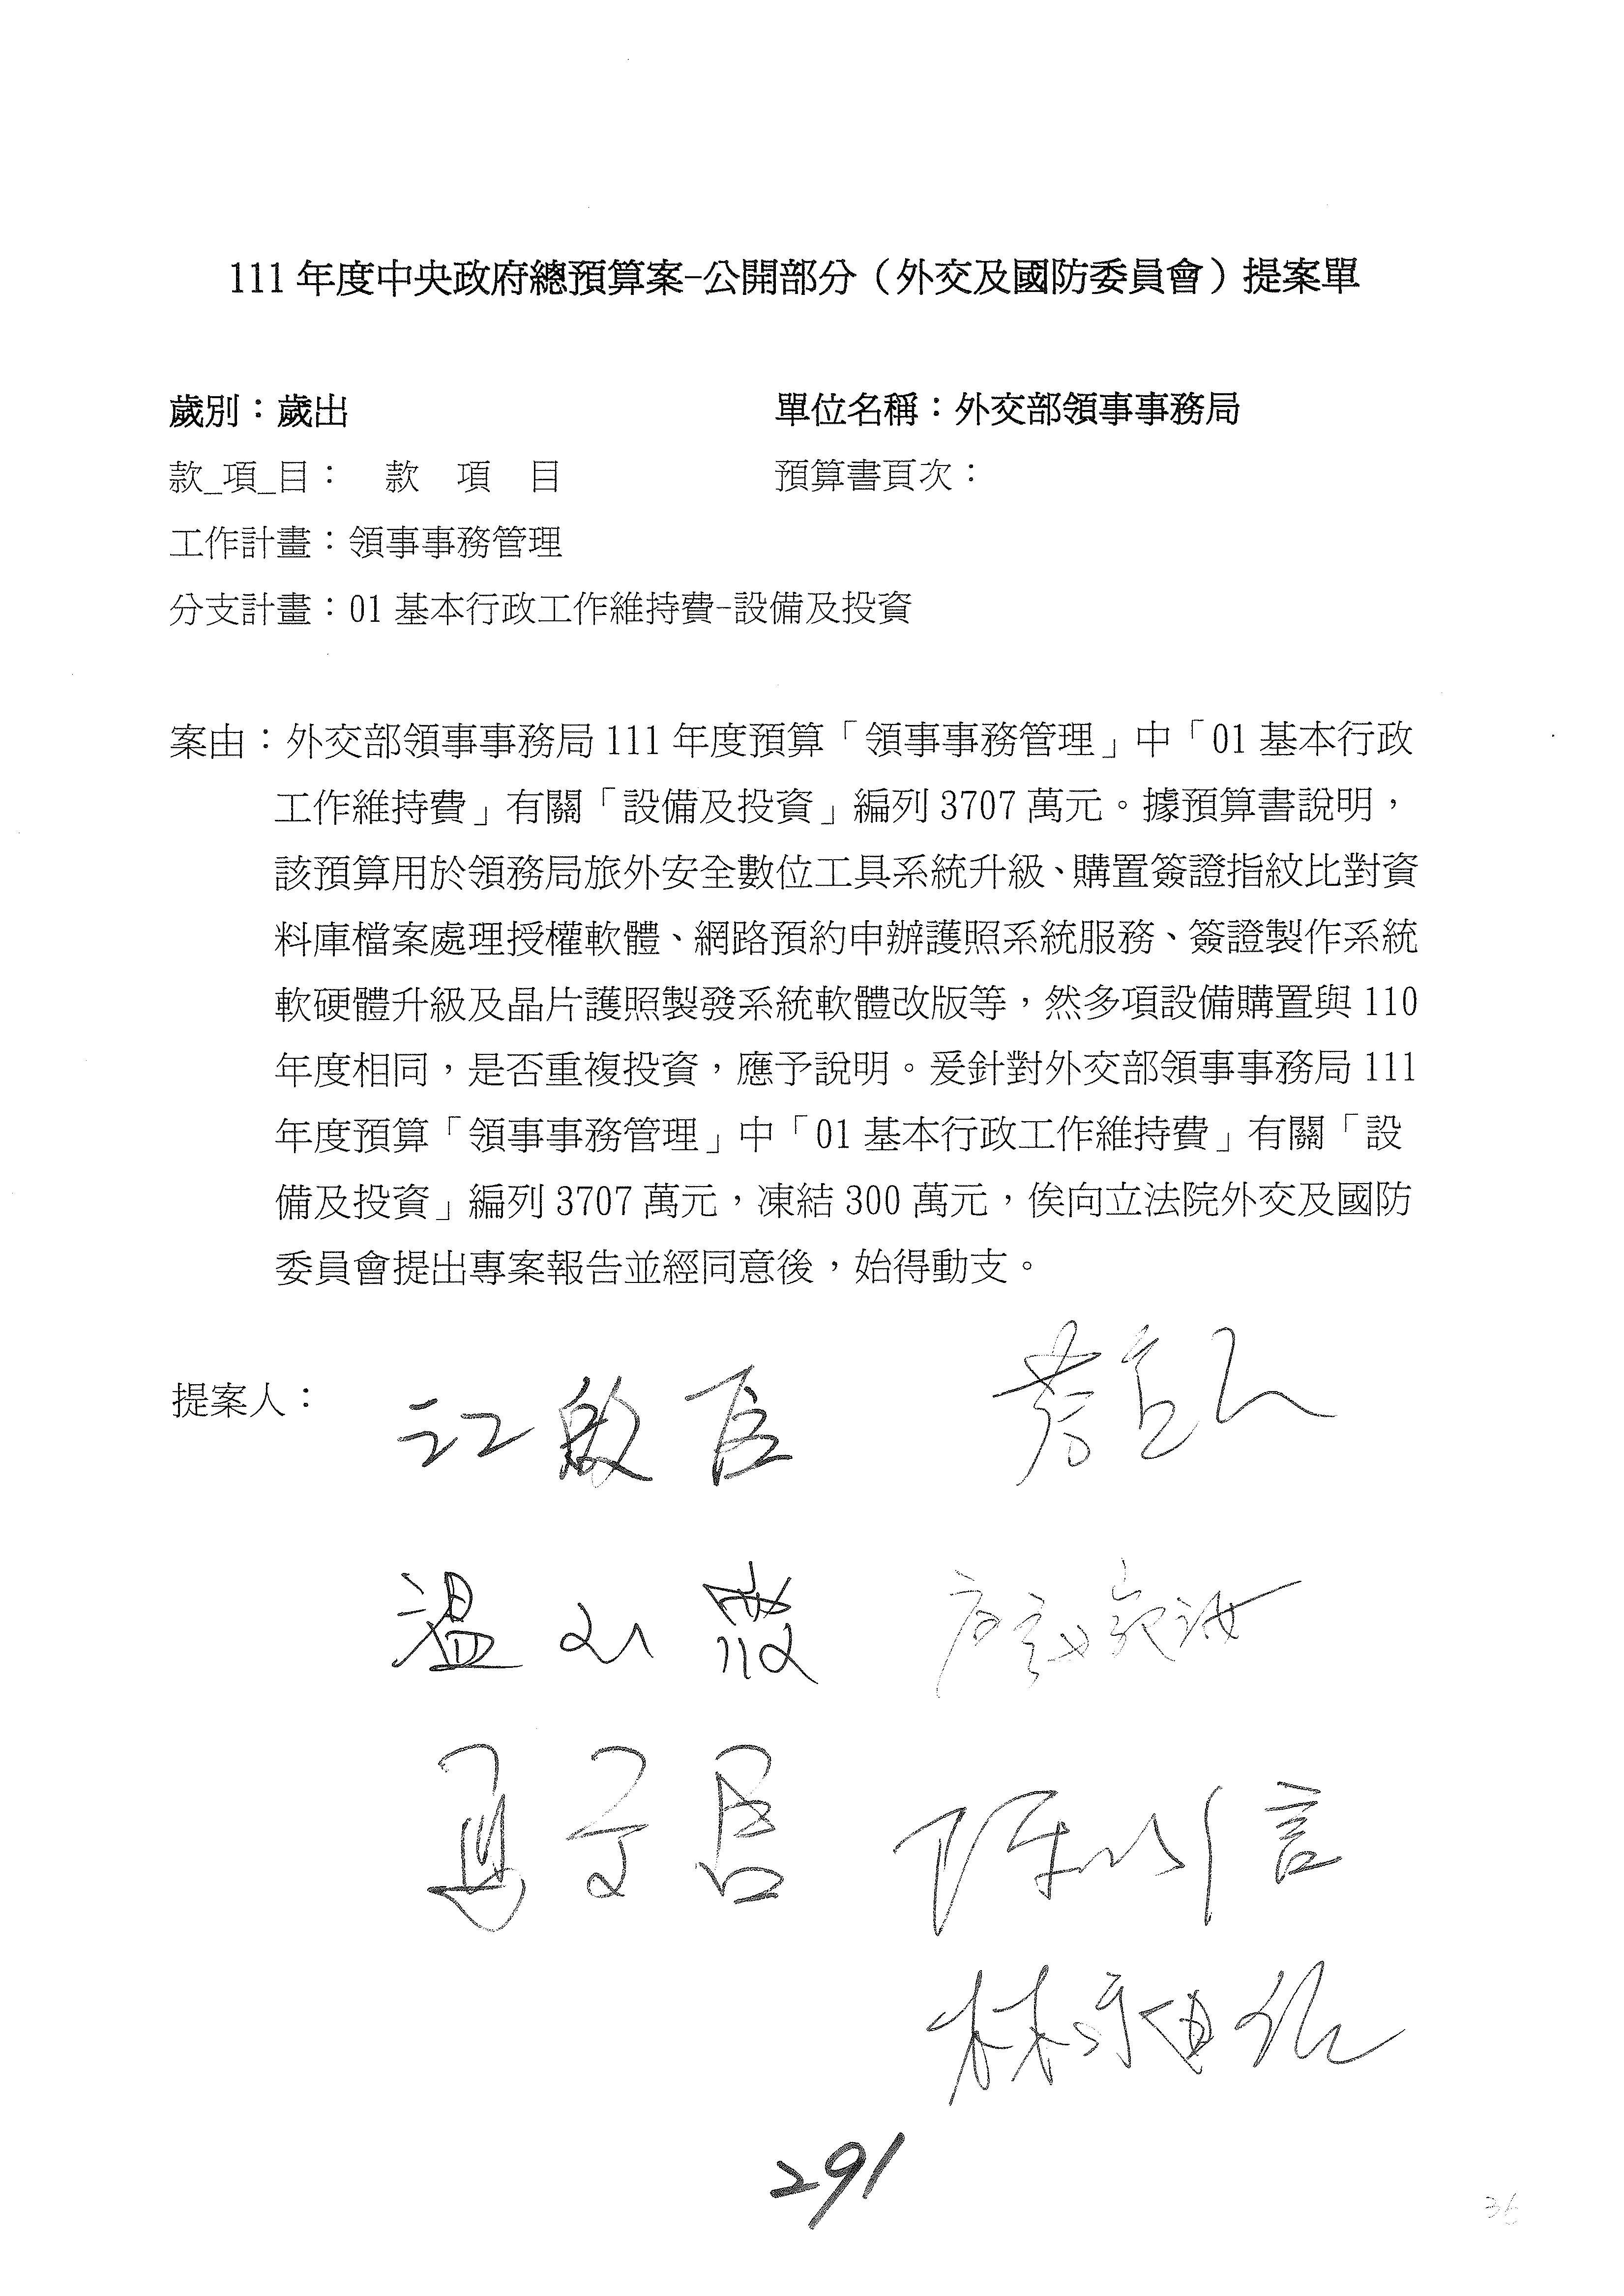 111年度中央政府總預算案-公開部分（外交及國防委員會）提案單
歲別：歲出　單位名稱：外交部領事事務局
款_項_目：　款　項　目　預算書頁次：
工作計畫：領事事務管理
分支計畫：01基本行政工作維持費-設備及投資
案由：外交部領事事務局111年度預算「領事事務管理」中「01基本行政
工作維持費」有關「設備及投資」編列3707萬元。據預算書說明，
該預算用於領務局旅外安全數位工具系統升級、購置簽證指紋比對資
料庫檔案處理授權軟體、網路預約申辦護照系統服務、簽證製作系統
軟硬體升級及晶片護照製發系統軟體改版等，然多項設備購置與110
年度相同，是否重複投資，應予說明。爰針對外交部領事事務局111
年度預算「領事事務管理」中「01基本行政工作維持費」有關「設
備及投資」編列3707萬元，凍結300萬元，俟向立法院外交及國防
委員會提出專案報告並經同意後，始得動支。
提案人：
江啟臣
溫玉霞　廖婉汝
馬文君　陳以信
291
36